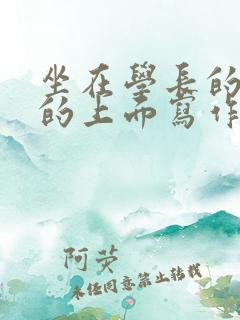 坐在學長的
的上面寫作
阿荧
未经同意禁止转载